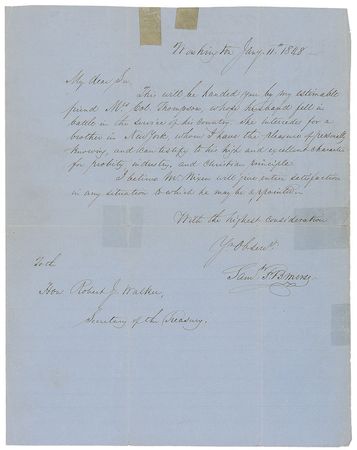 Washington Jany. 11th 1848
My dear Sir,
This will be handed you by my estimable
friend Mrs. Col. Thompson, whose husband fell in
battle in the service of his Country. She intercedes for a
brother in New York, whom I have the pleasure of personally
knowing, and can testify to his high and excellent character
for probity, industry, and Christian principle.
I believe Mr. will give entire satisfaction
in any situation to which he may be appointed.
With the highest consideration
Yr Ob Servt
Saml. F. B. Morse
To the
Hon. Robert J. Walker,
Secretary of the Treasury.